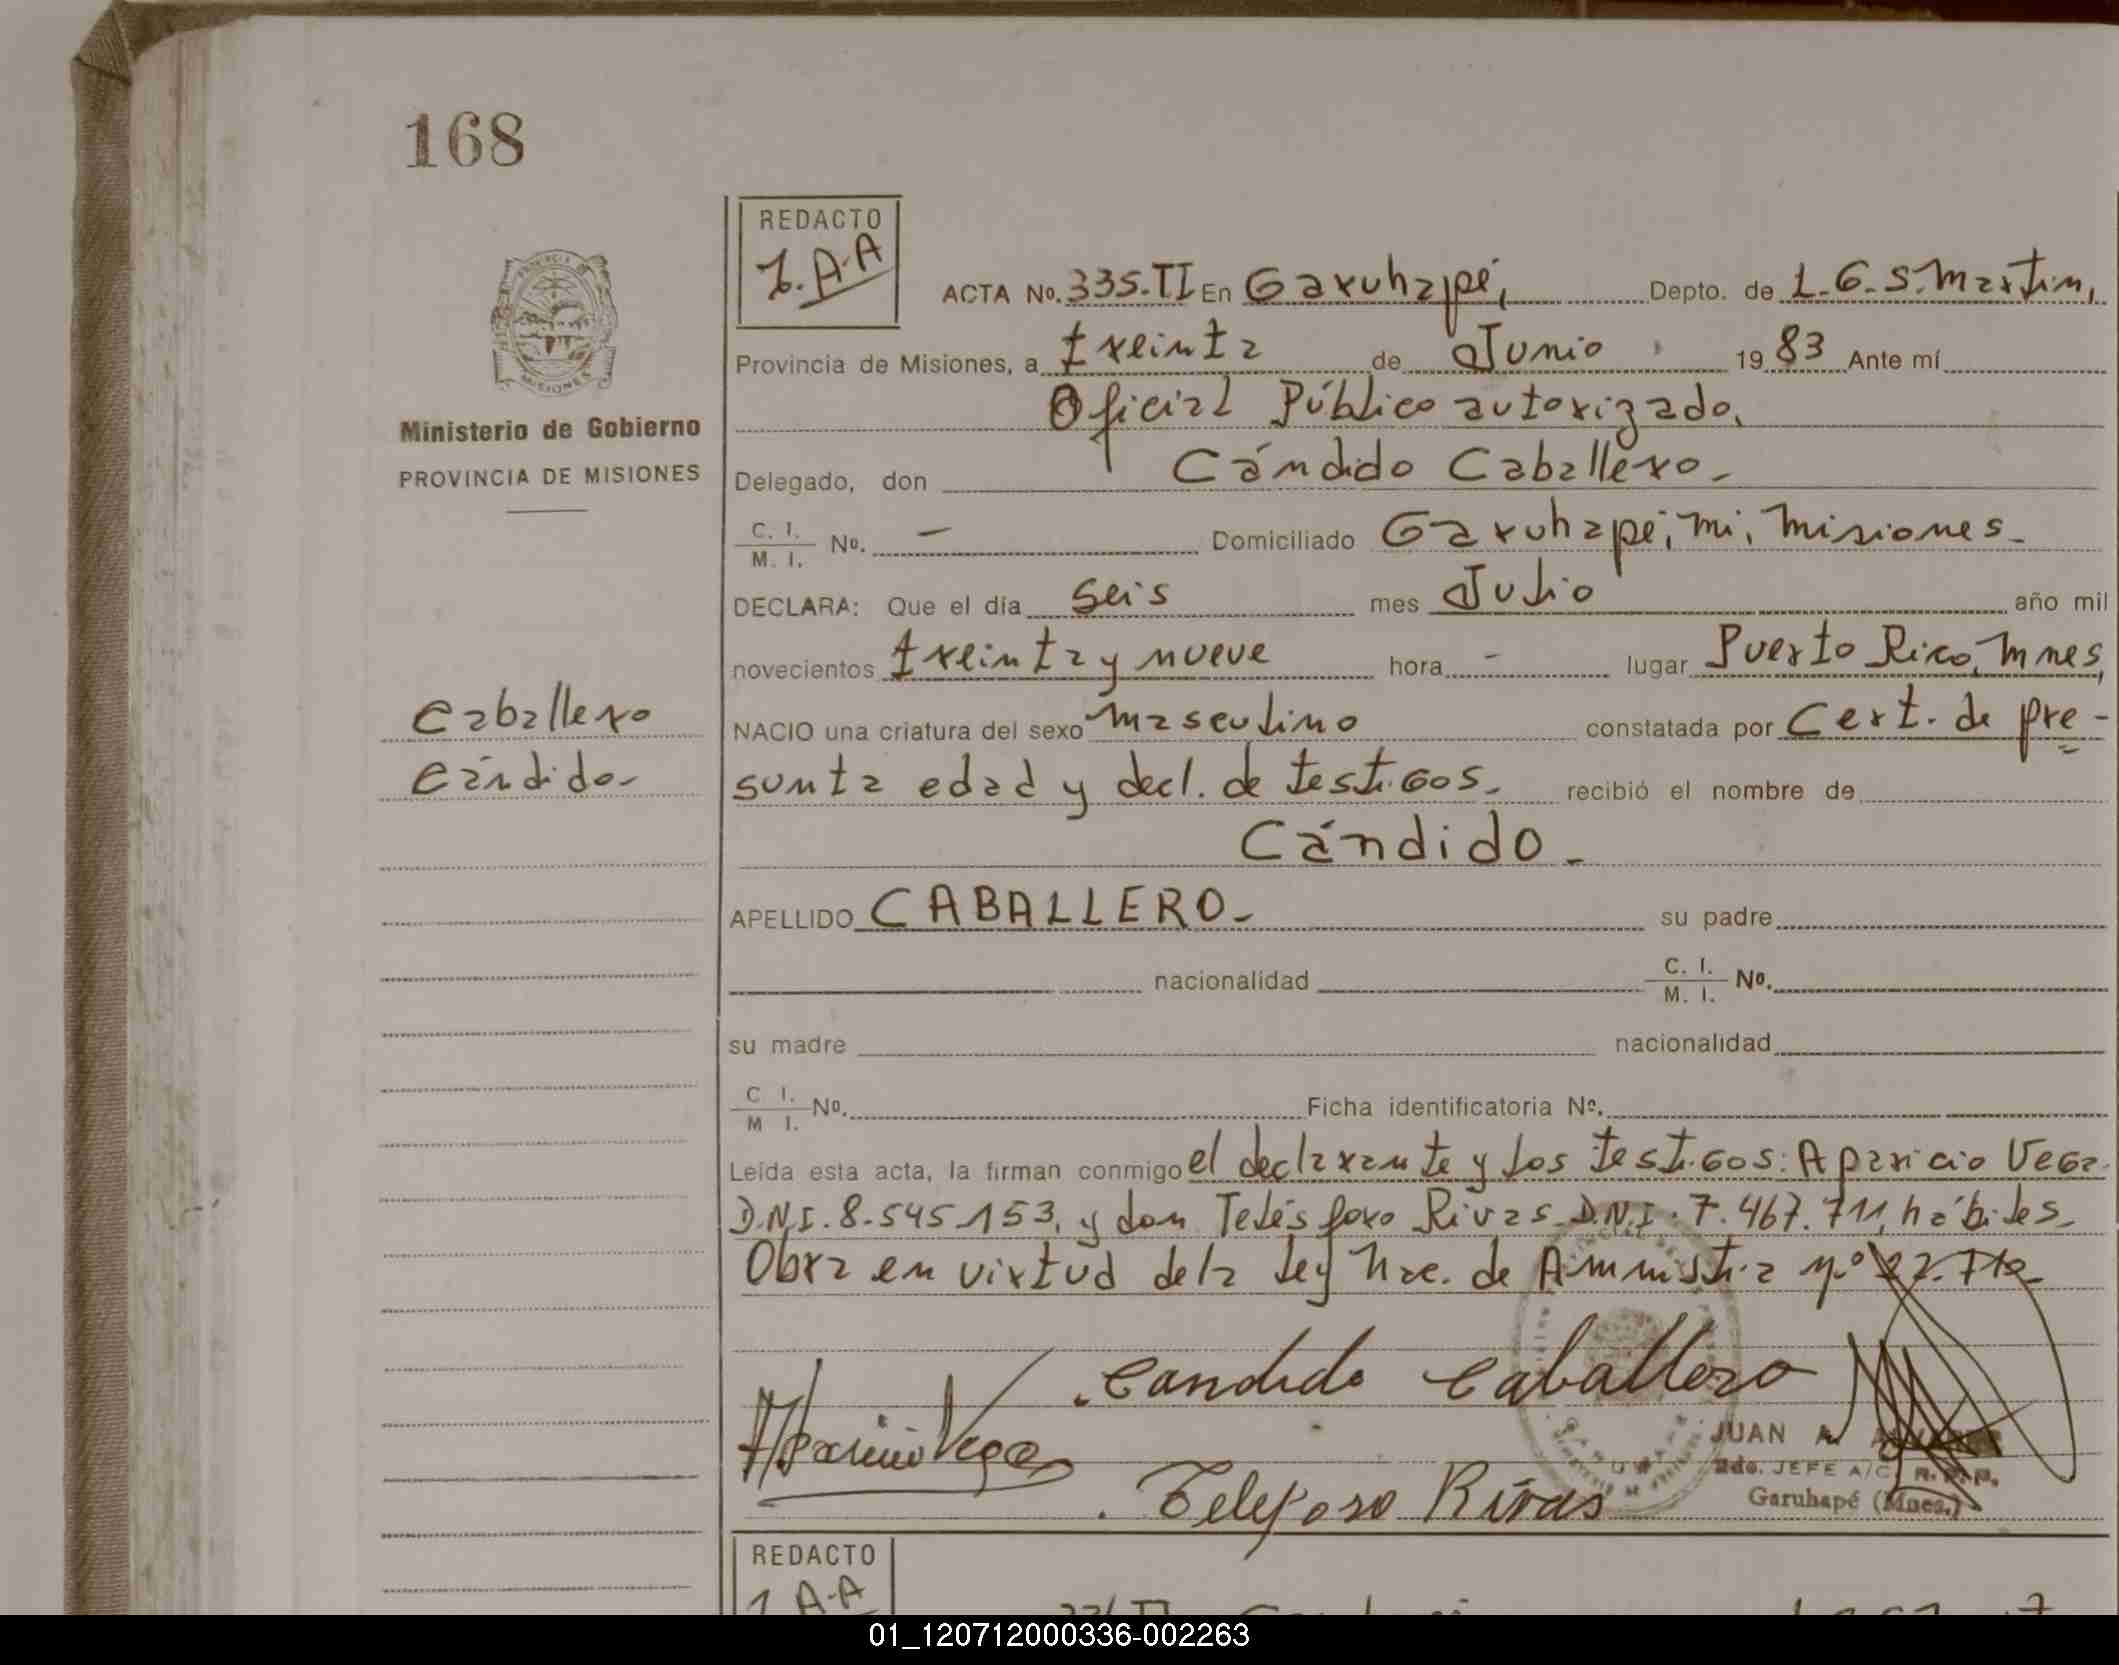 168
REDACTO
J. A-A
ACTA No. 335-TI En Garuhapé, Depto. de L. G. S. Martin,
Provincia de Misiones, a treinta de Junio 1983 Ante mí
Oficial Público autorizado,
Delegado, don Cándido Caballero.-
MISIONES
Ministerio de Gobierno
PROVINCIA DE MISIONES
C. I.
M. I. No. - Domiciliado Garuhapé, mi, Misiones.-
DECLARA: Que el día seis mes Julio año mil
novecientos treinta y nueve hora - lugar Puerto Rico, Mnes,
Caballero
Cándido.-
NACIO una criatura del sexo Masculino constatada por Cert. de pre-
sunta edad y decl. de testigos.- recibió el nombre de
Cándido.-
APELLIDO CABALLERO.- su padre
nacionalidad C. I. M. I. No.
su madre nacionalidad
C I. M I. No. Ficha identificatoria No.
Leída esta acta, la firman conmigo el declarante y los testigos: Aparicio Vega
D.N.I. 8.545.153, y don Telésforo Rivas D.N.I. 7.467.711, hábiles.
Obra en virtud de la Ley Nac. de Amnistia nº
Candido Caballero
Aparicio Vega
JUAN A.
2do. JEFE A/C
Garuhapé (Mnes.)
Telesforo Rivas
REDACTO
A-A
01_120712000336-002263